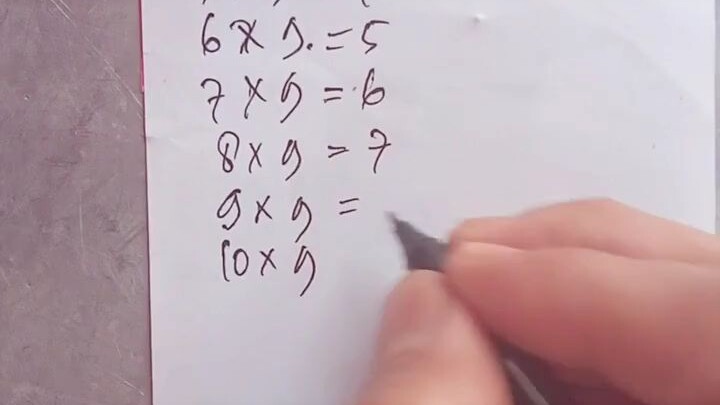 6 × 9 = 5
7 × 9 = 6
8 × 9 = 7
9 × 9 =
10 × 9